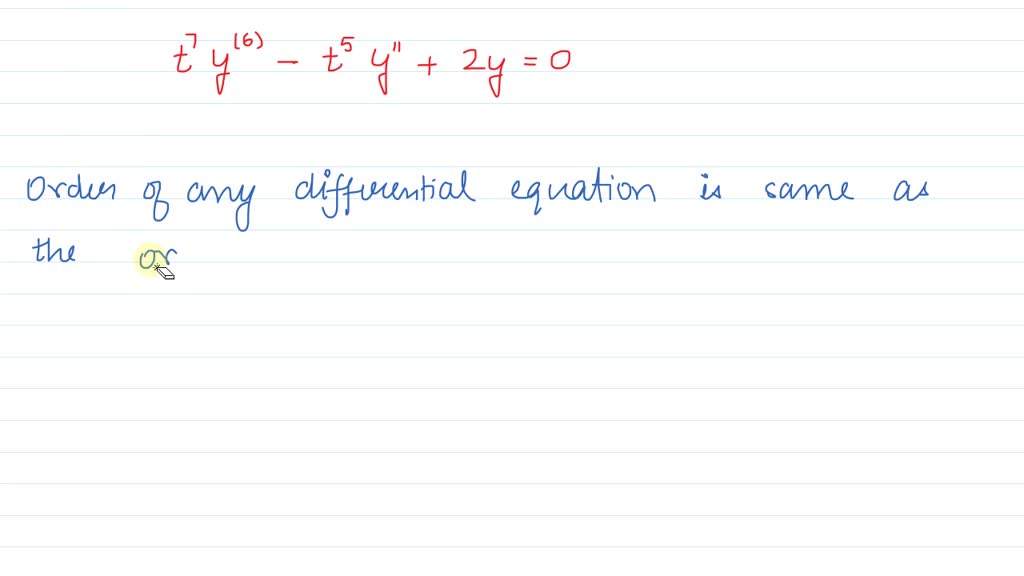 t⁷ y⁽⁶⁾ - t⁵ y" + 2y = 0
Order of any differential equation is same as
the or